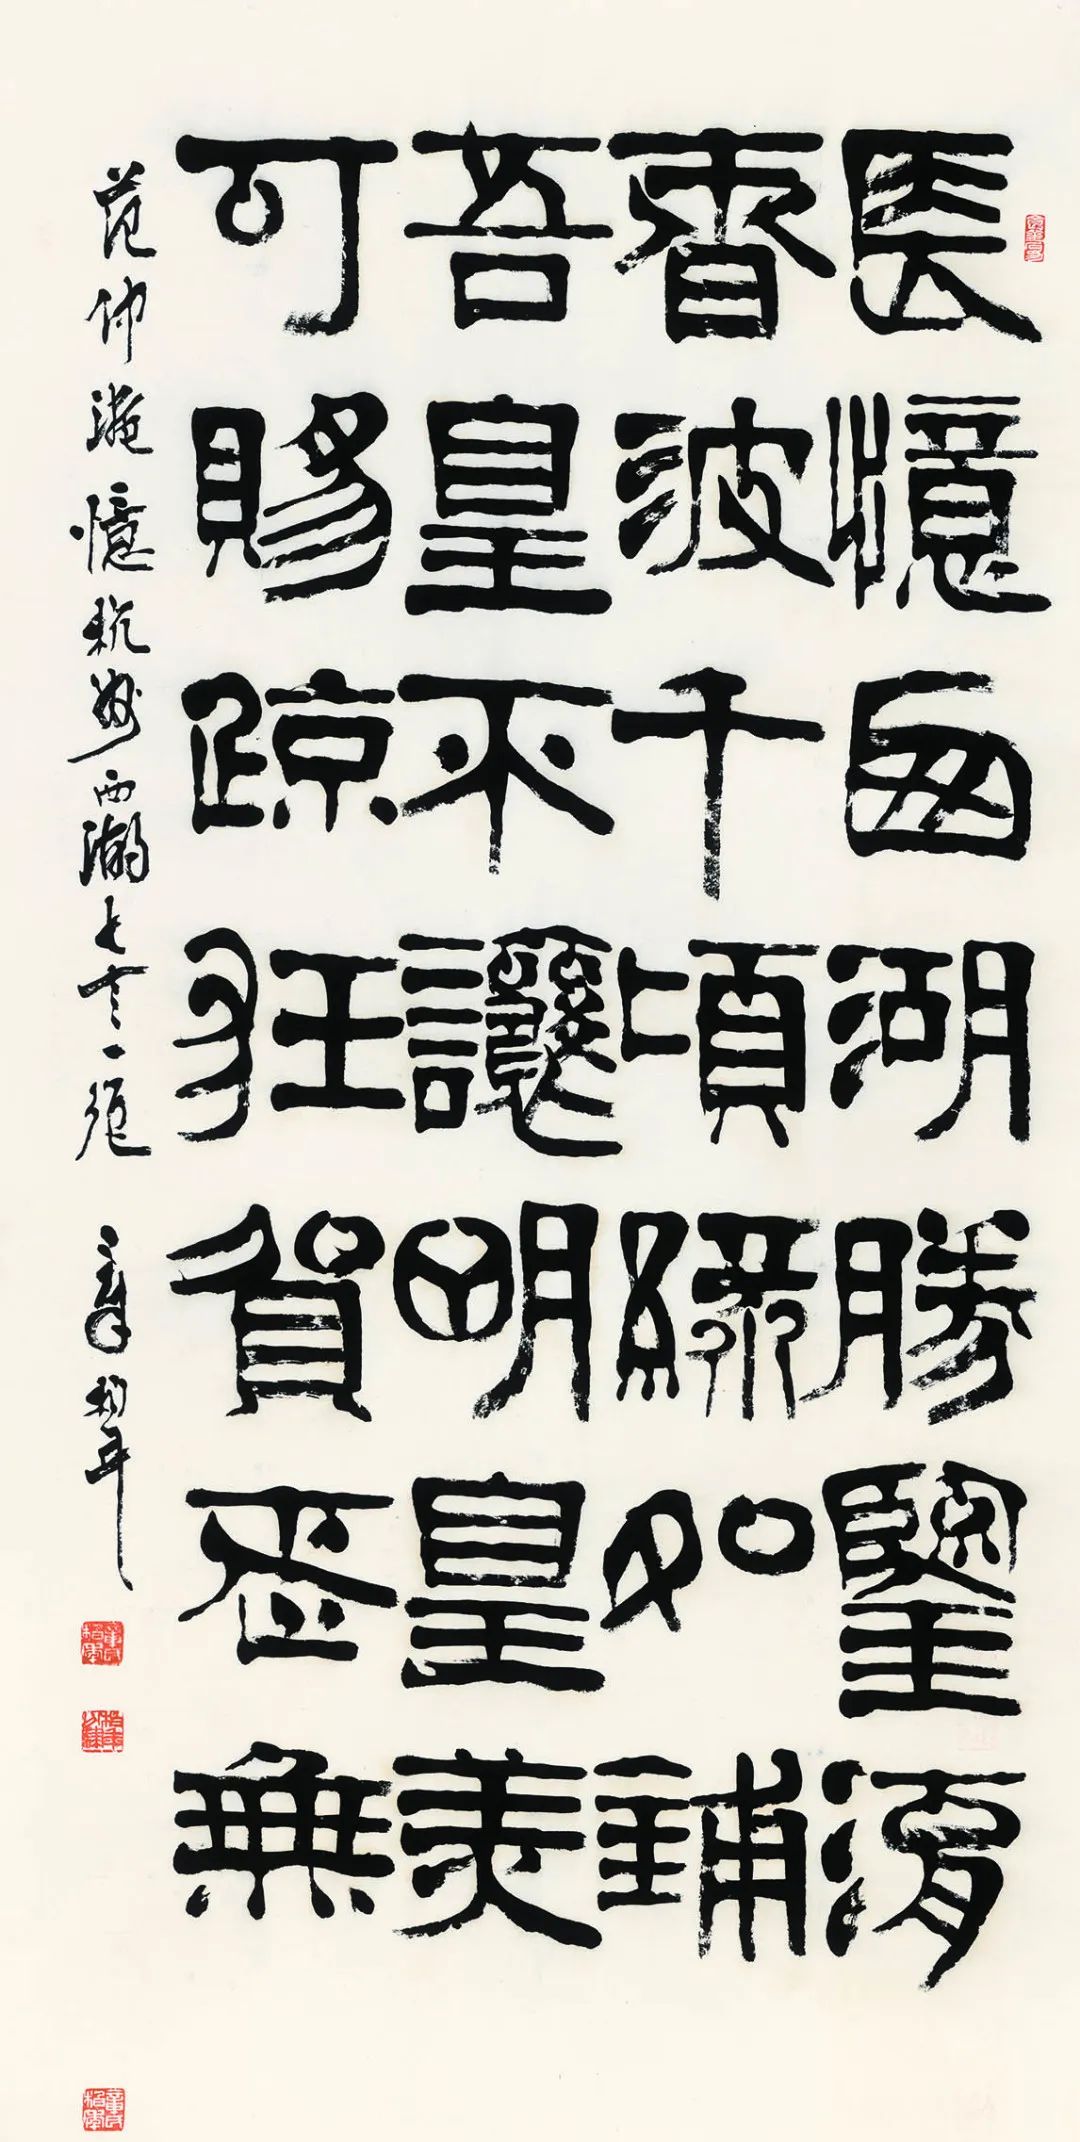 長憶西湖勝鑒湖
春波千頃綠如鋪
吾皇不讓明皇美
可賜踈狂賀老無
范仲淹憶杭州西湖七言一絕
章柏年